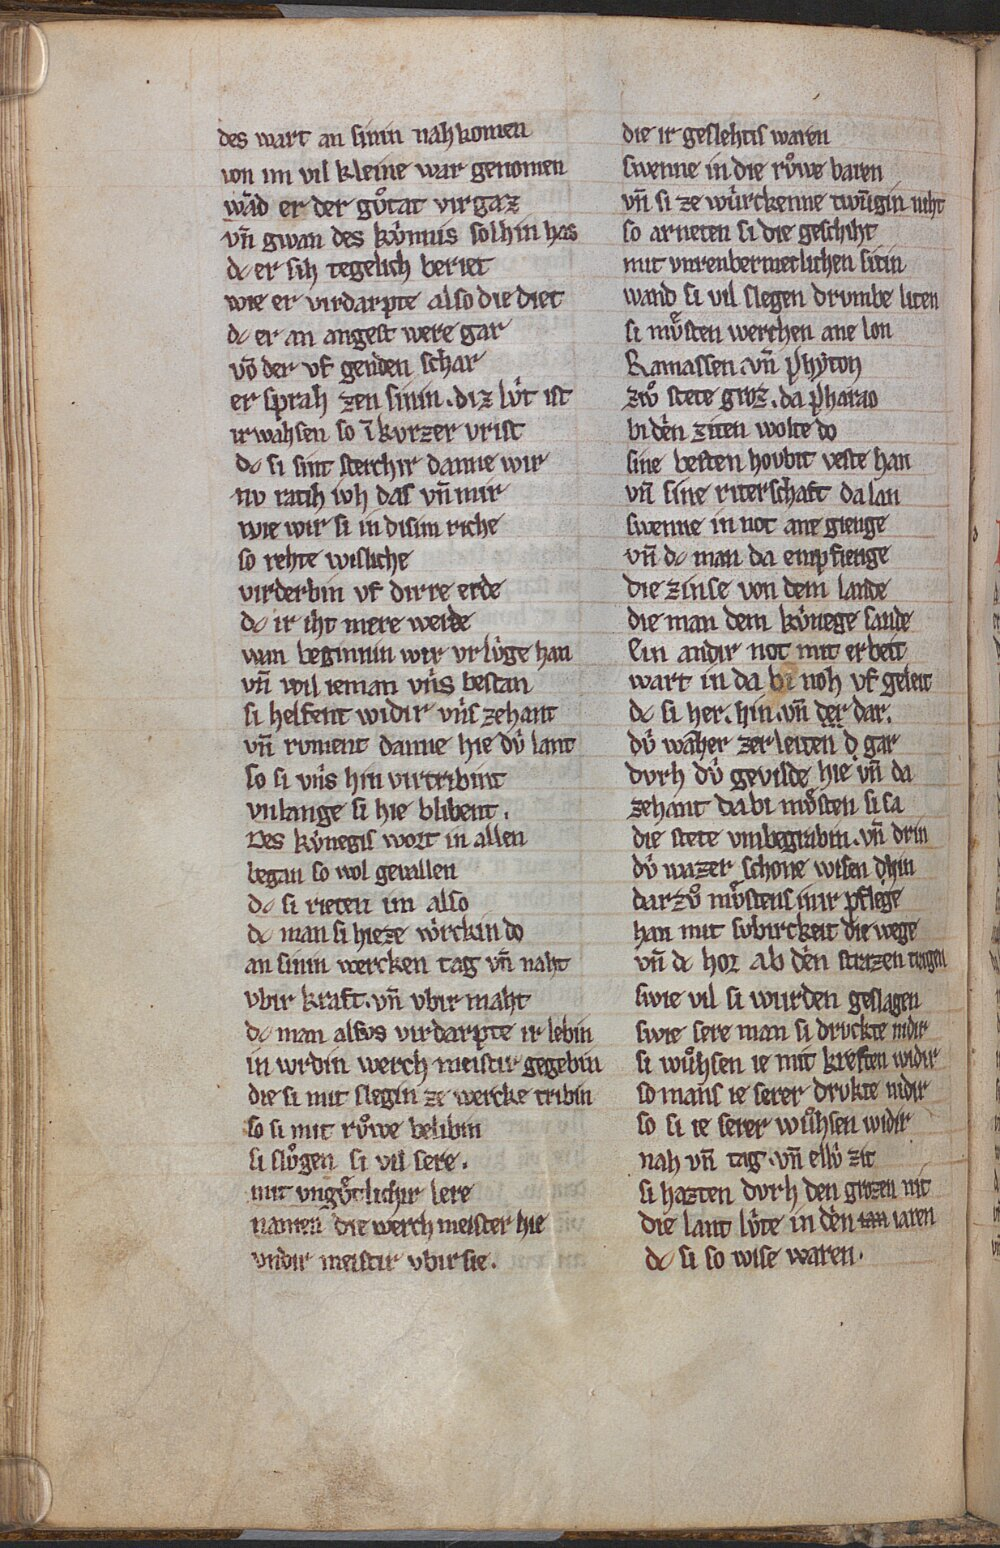 des wart an sinin nahkomen
von im vil kleine war genomen
wād er der gůtat virgaz
vn̄ gwan des kv́nnis solhin has
dc er sih tegelich beriet
wie er virdarpte also die diet
dc er an angest were gar
vō der vf genden schar
er sprah zen sinin . diz lv́t ist
irwahsen so ī kvrzer vrist
dc si sint sterchir danne wir
nv ratih ivh das vn̄ mir
wie wir si in disim riche
so rehte wisliche
virderbin vf dirre erde
dc ir iht mere werde
wan beginnin wir vrlv́ge han
vn̄ wil ieman vn̄s bestan
si helfent widir vn̄s zehant
vn̄ rvment danne hie dv́ lant
so si vn̄s hin virtribint
vnlange si hie blibent .
Des kv́negis wort in allen
began so wol gevallen
dc si rieten im also
dc man si hieze wv́rckin do
an sinin wercken tag vn̄ naht
vbir kraft . vn̄ vbir maht
dc man alsvs virdarpte ir lebin
in wrdin werch meistir gegebin
die si mit slegin ze wercke tribin
so si mit rv̊we belibin
si slv̊gen si vil sere .
mit vngv̊tlichir lere
namen die werch meister hie
vndir meistir vbir sie .
die ir geslehtis waren
swenne in die rv̊we baren
vn̄ si ze wúrckenne twn̄gin niht
so arneten si die geschiht
mit vnrenbermetlichen sitin
wand si vil slegen drvmbe liten
si mv̊sten werchen ane lon
Ramassen . vn̄ phyton
zwo stete groz . da pharao
bi dēn ziten wolte do
sine besten hovbit veste han
vn̄ sine riterschaft da lan
swenne in not ane gienge
vn̄ dc man da empfienge
die zinse von dem lande
die man dem kv́nege sande
Ein andir not mit erbeit
wart in da bi noh vf geleit
dc si her . hin . vn̄ der dar .
dv́ waher zerleiten d̄ gar
dvrh dv́ gevilde hie vn̄ da
zehant dabi mv̊sten si sa
die stete vmbegrabin . vn̄ drin
dv́ wazer schone wisen dvhin
darzv̊ mv̊stens imir pflege
han mit svbirckeit die wege
vn̄ dc hor ab dēn strazen tragen
swie vil si wurden geslagen
swie sere man si drvckte nidir
si wv̊hsen ie mit kreften widir
so mans ie serer drvkte nidir
so si ie serer wv̊hsen widir
nah vn̄ tag . vn̄ ellv́ zit
si hazten dvrh den grozen nit
die lant lv́te in dēn iaren
dc si so wise waren .